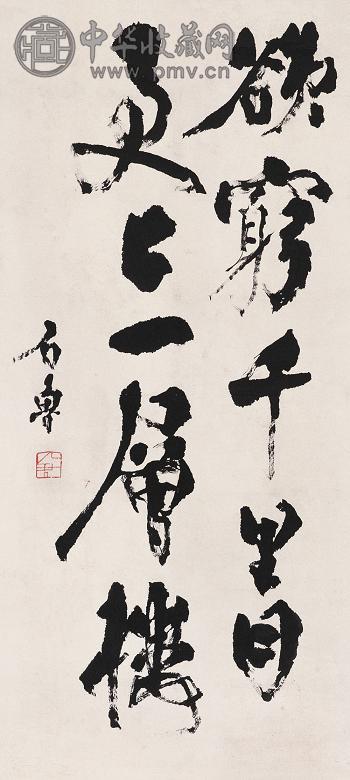 欲窮千里目
更上一層樓
石魯
中华收藏网
www.pmv.cn